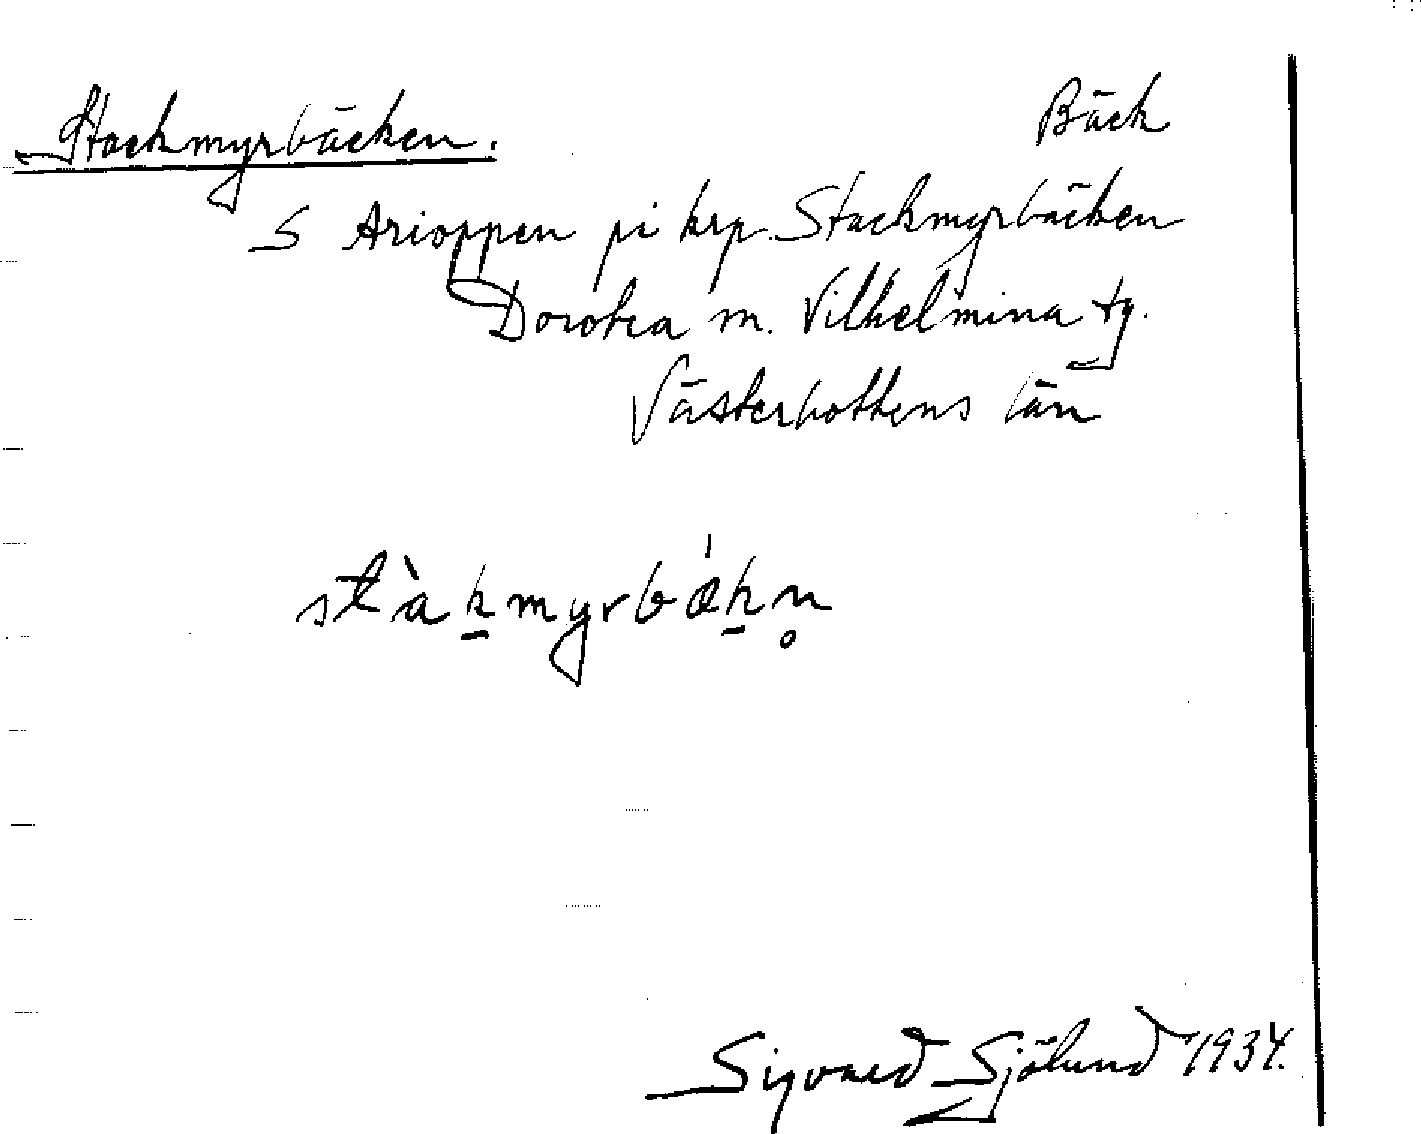 Stackmyrbäcken.
Bäck
S Arioppen på krp. Stackmyrbäcken
Dorotea m. Vilhelmina tg.
Västerbottens län
stàk̠myrbǽk̠n̥
Sigvard Sjölund 1934.